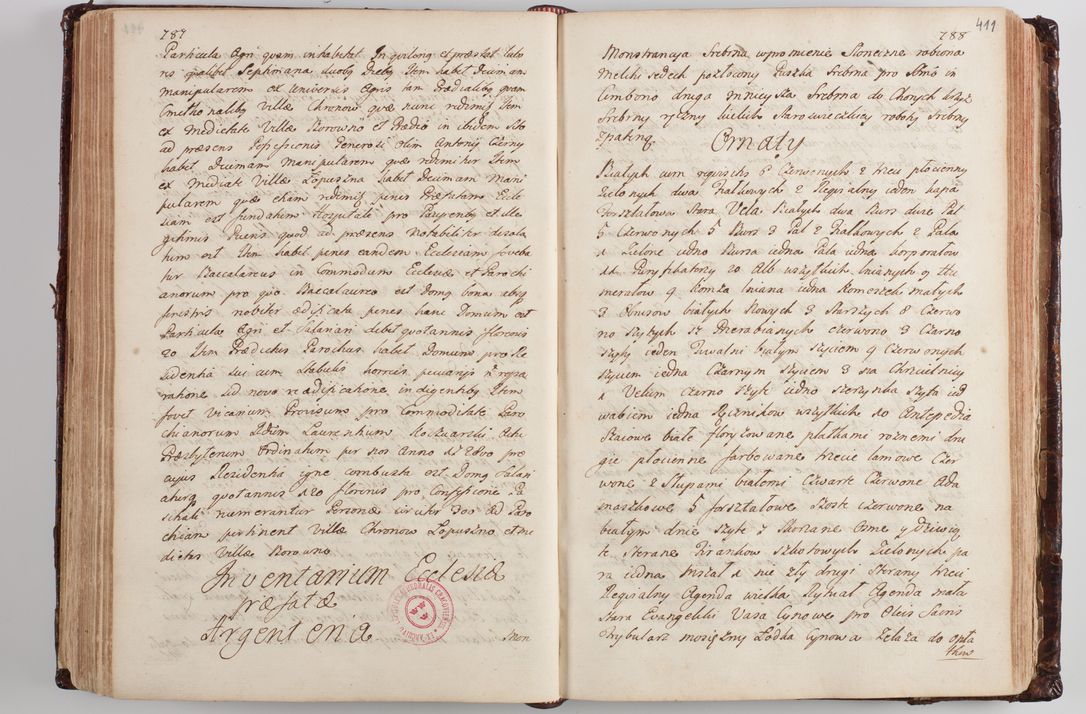 787
Particula Agri quam inhabitat In qvolong et præstat labo
res qualibet Septimana duobg Diebg Item habet Decimam
manipularem ex Universis Agris tam Prædialibg quam
Cmethonalibg Villæ Chronow quæ nunc redimitj Item
ex Medietate Villæ Borowno et Prædio in ibidem sito
ad præsens Possessionis Generosi Olim Antonij Czerny
habet Decimam Manipularem quæ redimitur Item
ex Mediate Villæ Łopuszna habet Decimam Mani
pularem quæ etiam redimitj penes Præfatam Eccle
siam est fundatum Hospitale pro Pauperibg et ille
gitimis Pueris quod ad præsens notabiliter desola
tum est Item habet penes eandem Ecclesiam foveba
tur Baccalareus in Commodum Ecclesiæ et Parochi
anorum pro quo Baccalaureo est Domg bona absq
finestris noviter ædificata penes hanc Domum est
Particula Agri et Salariari debet quotannis florenis
20 Item Prædictus Parochus habet Domum pro Re
sidentia sui cum stabulis horreis
ratione sed novo reædificatione indigentibg Item
fovet Vicarium Provisum pro Commoditate Paro
chianorum Adum Laurentium
Præsbyterum Ordinatum per nos Anno
cujus Residentia igne combusta est Domg Salari
aturq quotannis 120 florenis pro Confessione Pa
schali numerantur Personæ circiter 300 Ad Paro
chiam pertinent Villæ Chronow Łopuszno et me
dietas Villæ Borowno
Inventarium Ecclesiæ
præfatæ
Argenteria
Mon
411
788
Monstrancya Srebrna w promienie Słoneczne robiona
Melchisedech pozłocony Puszka Srebrna pro Sanctissimo in
Cimborio druga mnieysza Srebrna do Chorych Krzyż
Srebrny ręczny kielich Staroswieckiey roboty Srebrny
z pateną
Ornaty
Białych cum requisitis 5 Czerwonych 2 trzeci płocienny
Zielonych dwa Fiałkowych 2 Requialny ieden kapa
Forsztatowa Stara Vela Białych dwa Burs dwie Pal
5 Czerwonych 5 Burs 3 Pal 2 Fiałkowych 2 Pala
1 Zielone iedno Bursa iedna Pala iedna korporałow
11 Puryfikaterzy 20 Alb wszytkich lnianych 9 Hu
merałow 9 Komża lniana iedna Komeszek małych
3 Obrusow białych Nowych 3 Starszych 8 Czerwo
no szytych 12 Harabianych czerwono 3 Czarno
szyty ieden Tuwalni białym szyciem 9 Czerwonych
szyciem iedna Czarnym szyciem 3 na Chrzcielnicy
1 Velum czarno szyte iedno Serzynka szyta ied
wabiem iedna Ręcznikow wszytkich 10 Antepedia
Szaiowe białe floryzowane płatkami roznemi dru
gie płocienne farbowane trzecie lamowe Czer
wone z Słupami białemi Czwarte Czerwone Ada
maszkowe 5 forsztatowe Szoste czerwone na
białym dnie szyte 7 Skorzane Osme y Dziewią
te Starane Firankow szychtowych Zielonych pa
ra iedna Mszał 1 nie zły drugi Starany trzeci
Requialny Agenda wielka Rytual Agenda mała
Stara Evangeliki Vasa Cynowe pro Oleis Sacris
Trybularz mosiężny Łodka Cynowa Zelaza do opła
tkow